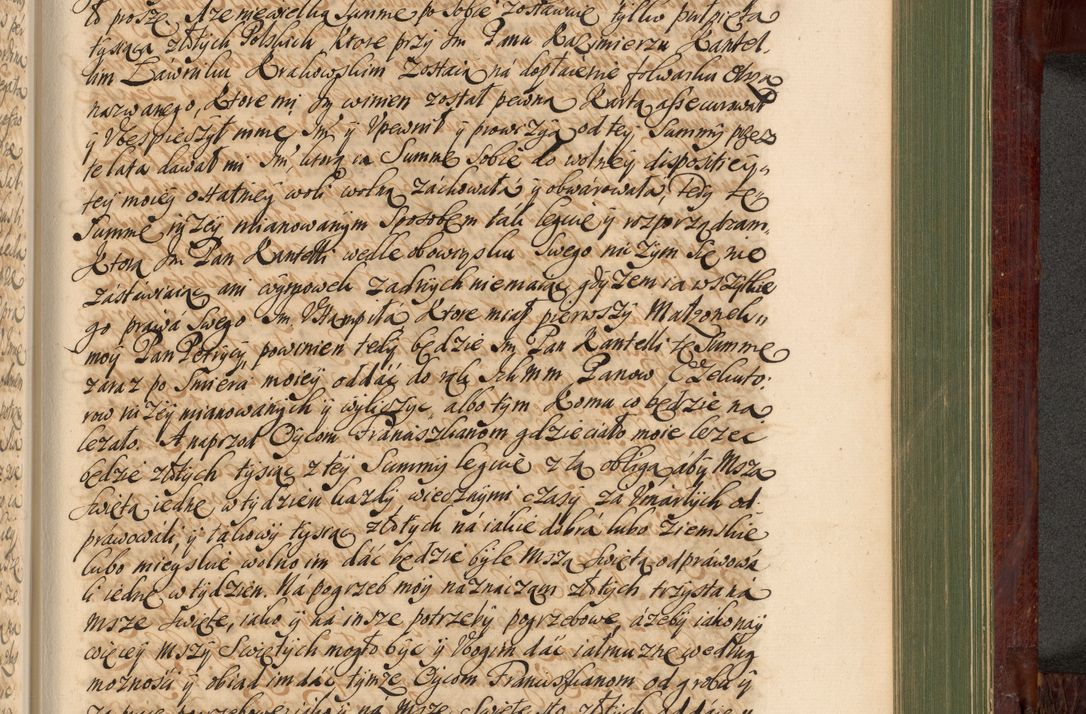 proszę. Aże niewielką Summę po sobie zostawuię tylko pułpięta
tysiąca złotych Polskich, ktore przy Jm Panu Kazimierzu Kantel
lim Ławniku Krakowskim zostaią ná dopłacenie folwarku Olsza
nazwanego, ktore mi Jm winien został pewną Kartą assecurował
ÿ Vbespieczył mnie Jm ÿ Vpewnił ÿ prowizyą od teÿ Summÿ przez
te lata dawał mi Jm, ktorą ia Summę sobie do wolneÿ dispositieÿ
teÿ moieÿ ostatneÿ woli wolną záchowała ÿ obwárowała, Tedÿ tę
Summę niżeÿ mianowanÿm sposobem tak leguię ÿ rozporządzam,
Ktorą Jm Pan Kantelli wedle obowiąsku swego niczÿm się nie
zástáwiaiąc ani wÿmowek żadnÿch niemaiąc gdÿżem ia wszÿtkie
go prawá swego Jm Vstąpiłá ktore miał pierwszÿ Małżonek
moÿ Pan Petricÿ, powinien tedÿ będzie Jm Pan Kantelli tę Summę
zaraz po Smierci moieÿ oddáć do rąk Ich Mm Panow Exekuto
row niżeÿ mianowanÿch ÿ wÿliczÿć, albo tÿm komu co będzie na
leżało. A naprzod Oÿcom Franciszkanom gdzie ciało moie leżeć
będzie złotÿch tÿsiąc z teÿ Summÿ leguię z tą obligą áby Mszą
świętą iednę w tÿdzień każdÿ wiecznÿmi czasÿ zá Vmárłÿch od
prawowali ÿ takowÿ tÿsiąc złotÿch ná iákie dobrá lubo ziemskie
lubo mieÿskie wolno im dáć będzie bÿle Mszą świętą odpráwowá
li iednę w tÿdzien. Ná pogrzeb moÿ náznáczam złotÿch trzÿsta ná
msze święte, iáko ÿ ná insze potrzebÿ pogrzebowe, ażebÿ iáko naÿ
więceÿ mszÿ Swiętÿch mogło bÿć ÿ Vbogim dáć iałmużnę według
możności ÿ obiad im dáć tÿmże Oÿcom Franciszkanom od grobu ÿ
pogrzebowe iáko ÿ na Msze Swięte sto złotÿch